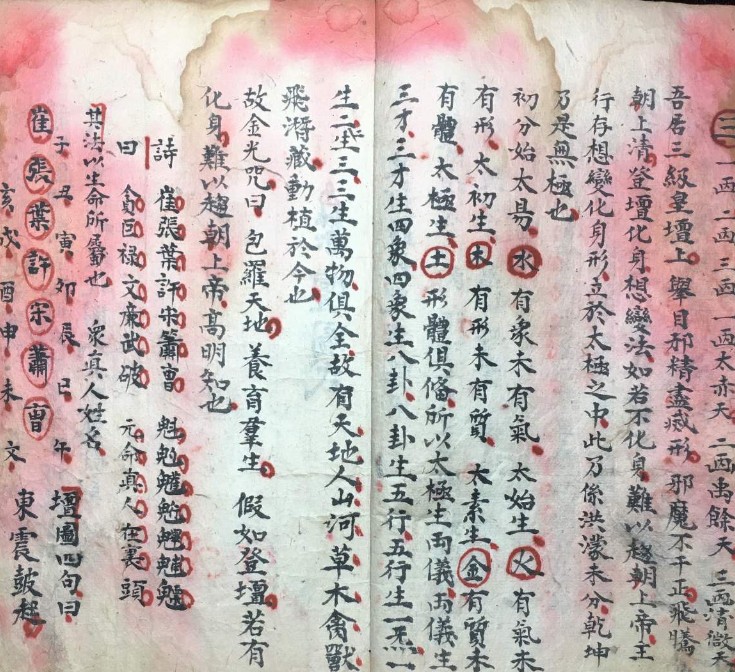 三 一西 二西 三西 一西太赤天 二西禹餘天 三西清微天
吾居三級皇壇上舉目邪精盡滅形邪魔不干正飛騰
朝上清登壇化身想變法如若不化身難以趨朝上帝王
行存想變化身形立於太極之中此乃係洪濛未分乾坤
乃是無極也
初分始太易水有象未有氣太始生火有氣未
有形太初生木有形未有質太素生金有質未
有體太極生土形體俱備所以太極生兩儀兩儀生
三才三才生四象四象生八卦八卦生五行五行生一炁一
生二二生三三生萬物俱全故有天地人山河草木禽獸
飛潛藏動植於今也
故金光咒曰包羅天地養育羣生假如登壇若有
化身難以趨朝上帝高明知也
詩 崔張葉許宋蕭曹 魁𩲃䰢魓
曰 貪巨祿文廉武破 元命真人在裏頭
其法以生命所屬也 衆真人姓名
子丑寅卯辰巳午 壇圖四句曰
崔張葉許宋蕭曹 東震鼓起
亥戌酉申未 文